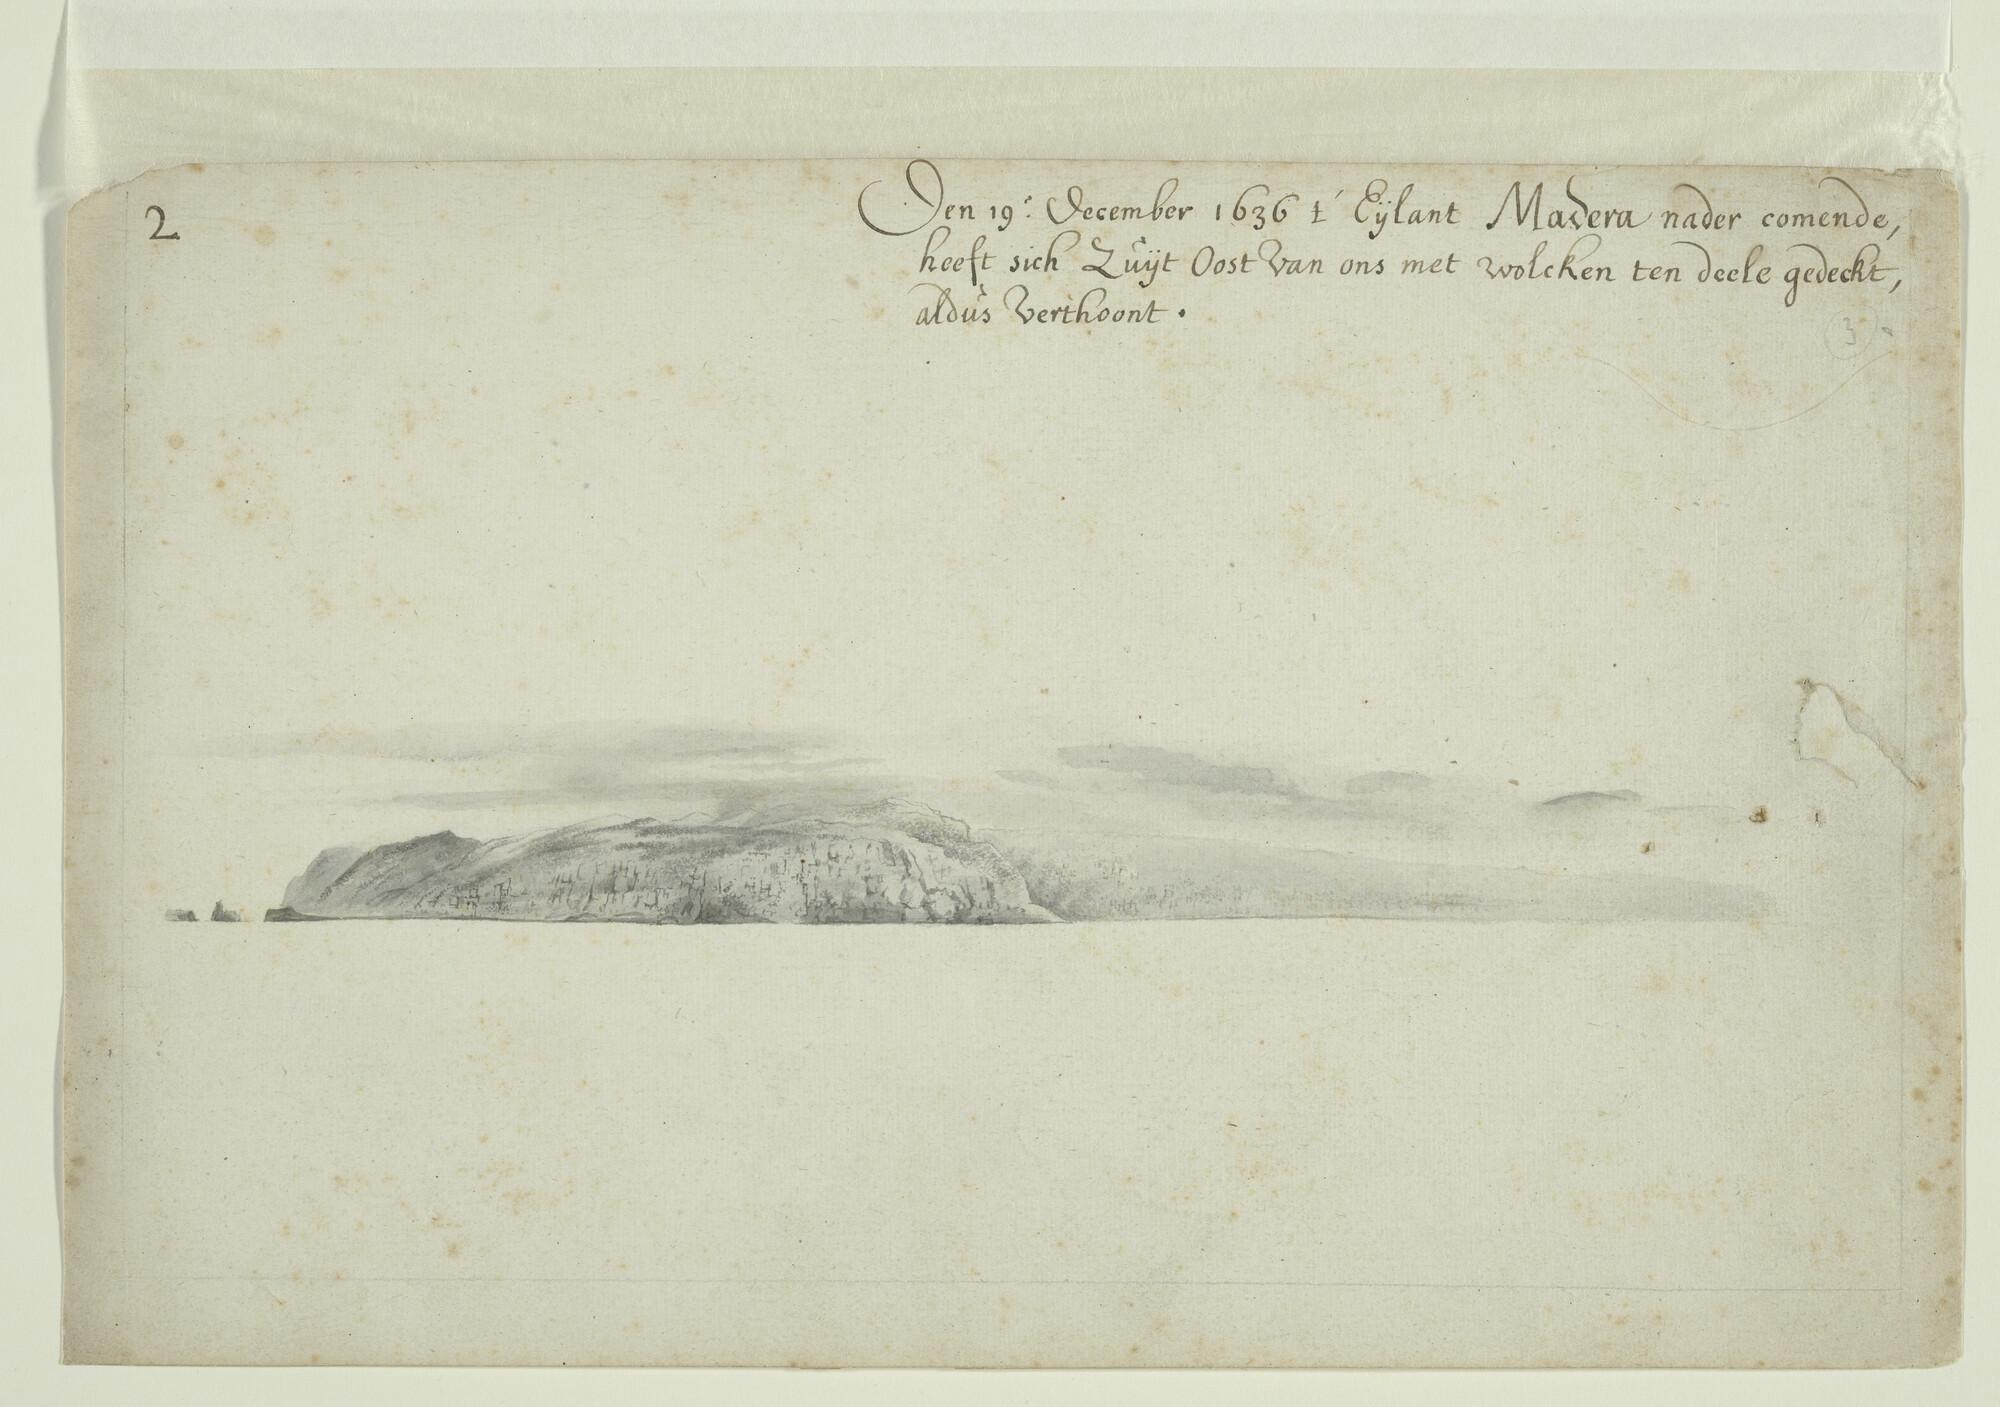 2
Den 19.ᵉ December 1636 t' Eijlant Madera nader comende,
heeft sich Zuijt Oost van ons met wolcken ten deele gedeckt,
aldus verthoont.
3